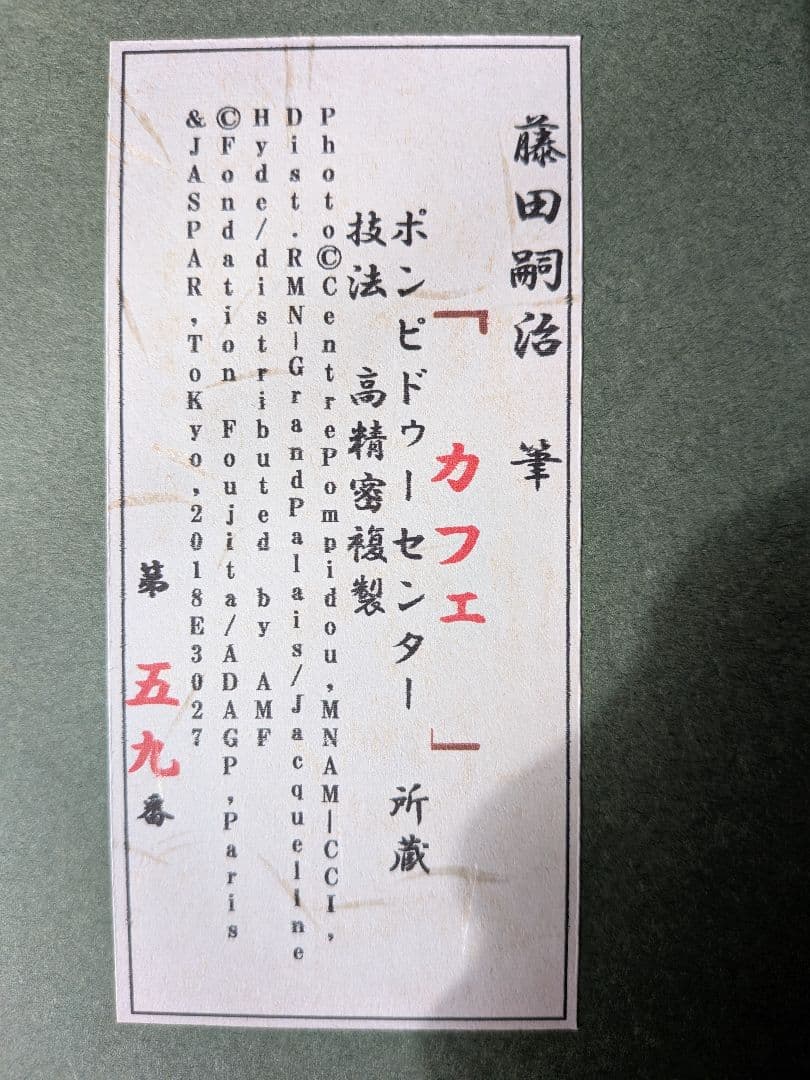 藤田嗣治 筆
「 カフェ 」
ポンピドゥーセンター 所蔵
技法 高精密複製
Photo©CentrePompidou,MNAM-CCI,
Dist.RMN-GrandPalais/Jacqueline
Hyde/distributed by AMF
©Fondation Foujita/ADAGP,Paris
&JASPAR,ToKyo,2018E3027
第 五九 番